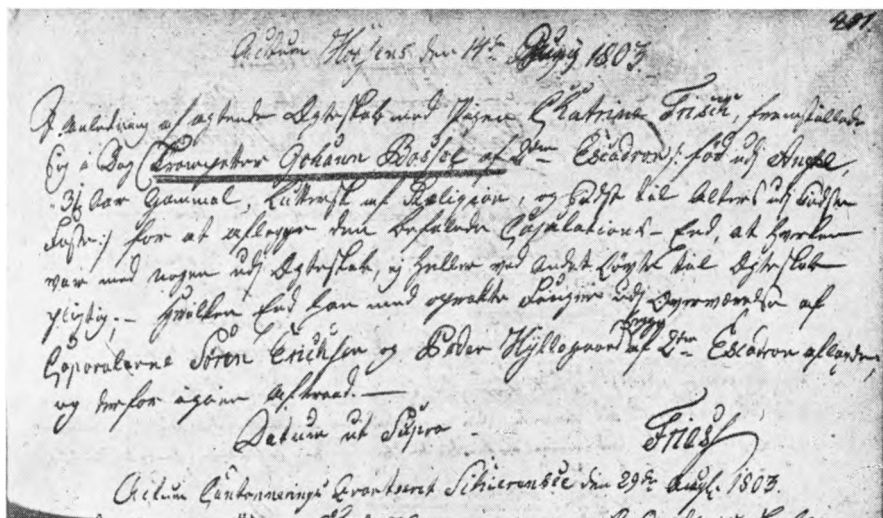 207.
Actum Horsens den 14de Juny 1803
I Anledning af agtende Ægteskab med Pigen Cathrine Frisch, fremstillede
sig i Dag Trompeter Johann Bossel af 2den Escadron /: fød udj
Aar Gammel, Luttersk af Religion, og sidst til Alters udj sidste
Faste :/ for at aflegge den befalede Copulations-Eed, at hverken
var med nogen udj Ægteskab, ej heller ved andet Løvte til Ægteskab
pligtig; - hvilken Eed han med oprakte Fingre udj Overværelse af
Corporalerne Sören Erichsen og Peder Hyllegaard begge af 2den Escadron aflagde,
og derfor igien aftraad. -
Datum ut Supra
Friis
Actum Cantonnerings Qvarteret Schierensee den 29de Augt. 1803.